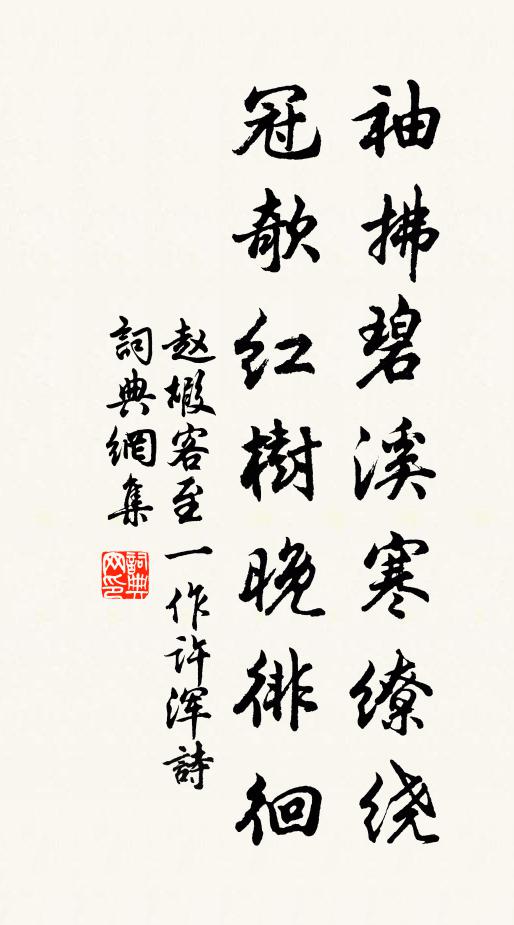 袖拂碧溪寒缭绕
冠欹红樹晚徘徊
赵嘏客至一作许浑詩
詞典網集
詞典网印